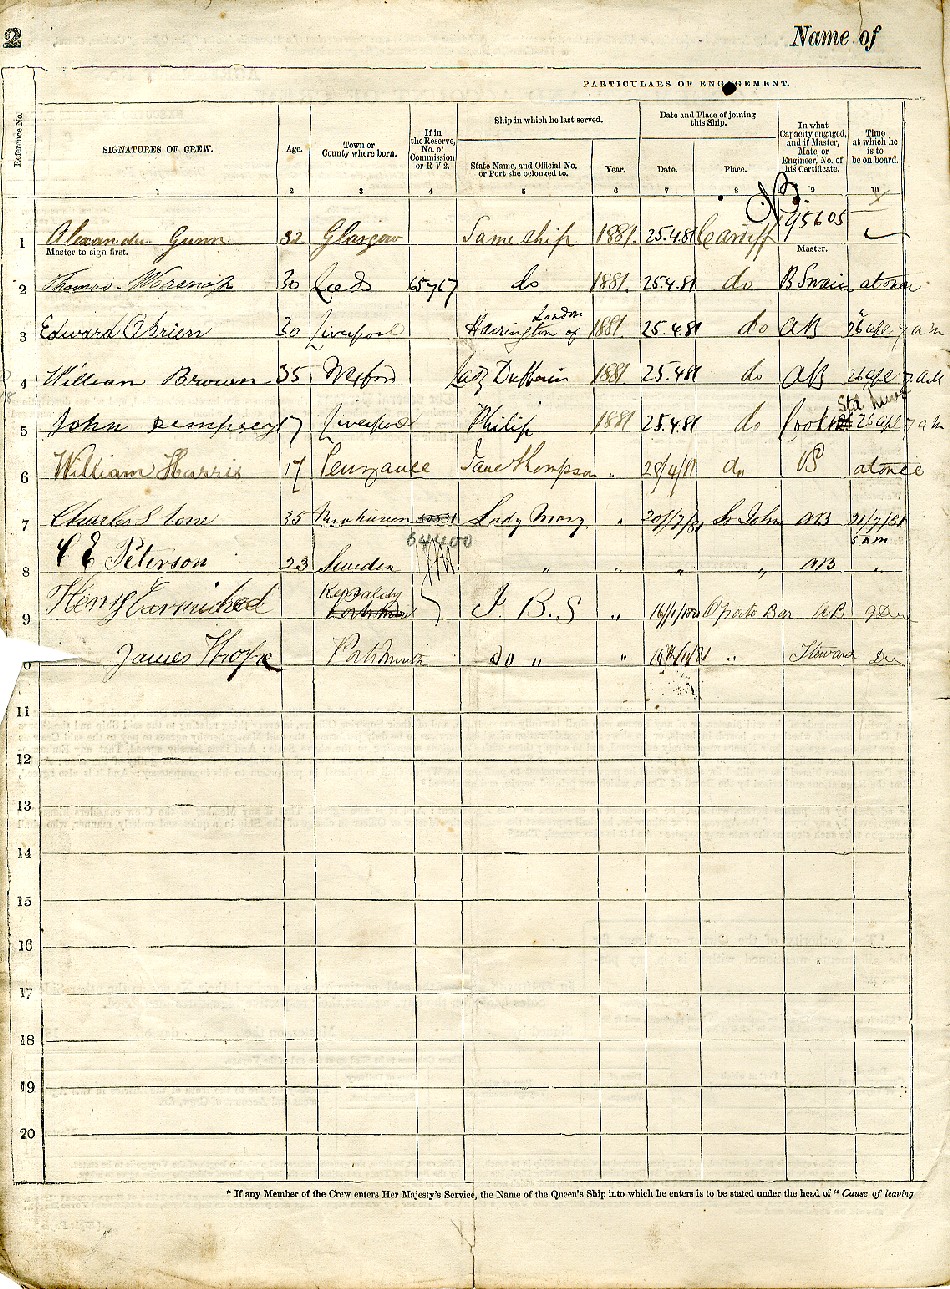 2
Name of
PARTICULARS OF ENGAGEMENT.
Reference No.
SIGNATURES OF CREW.
Age.
Town or County where born.
If in the Reserve, No. of Commission or R V 2.
Ship in which he last served.
State Name, and Official No. or Port she belonged to.
Year.
Date and Place of joining this Ship.
Date.
Place.
In what Capacity engaged, and if Master, Mate or Engineer, No. of his Certificate.
Time at which he is to be on board.
1 2 3 4 5 6 7 8 9 10
1 Alexander Gunn 32 Glasgow Same ship 1881. 25.4.81 Cardiff 95605
Master to sign first.
Master.
2 Thomas 30 Leeds 65767 do 1881. 25.4.81 do B Swain at once
3 Edward OBrien 30 Liverpool Harrington of London 1881. 25.4.81 do AB 26 apl 7 am
4 William Brown 35 Wexford Lady Dufferin 1881 25.4.81 do AB 26 apl 7 am
5 John Dempsey 17 Liverpool Philip 1881 25.4.81 do Cook Std 26 apl 7 am
6 William Harris 17 Penzance Jane Thompson " 28/4/81 do OS at once
7 Charles Stone 35 Newhaven Lady Mary " 20/7/81 St John AB 21/7/81
5 am
64400
8 C E Peterson 23 Sweden " " " " AB "
9 Henry Carmichael J. B. S " Oporto Bar AB
James Thorpe Portsmouth Do " " " Steward
11
12
13
14
15
16
17
18
19
20
* If any Member of the Crew enters Her Majesty's Service, the Name of the Queen's Ship into which he enters is to be stated under the head of "Cause of leaving